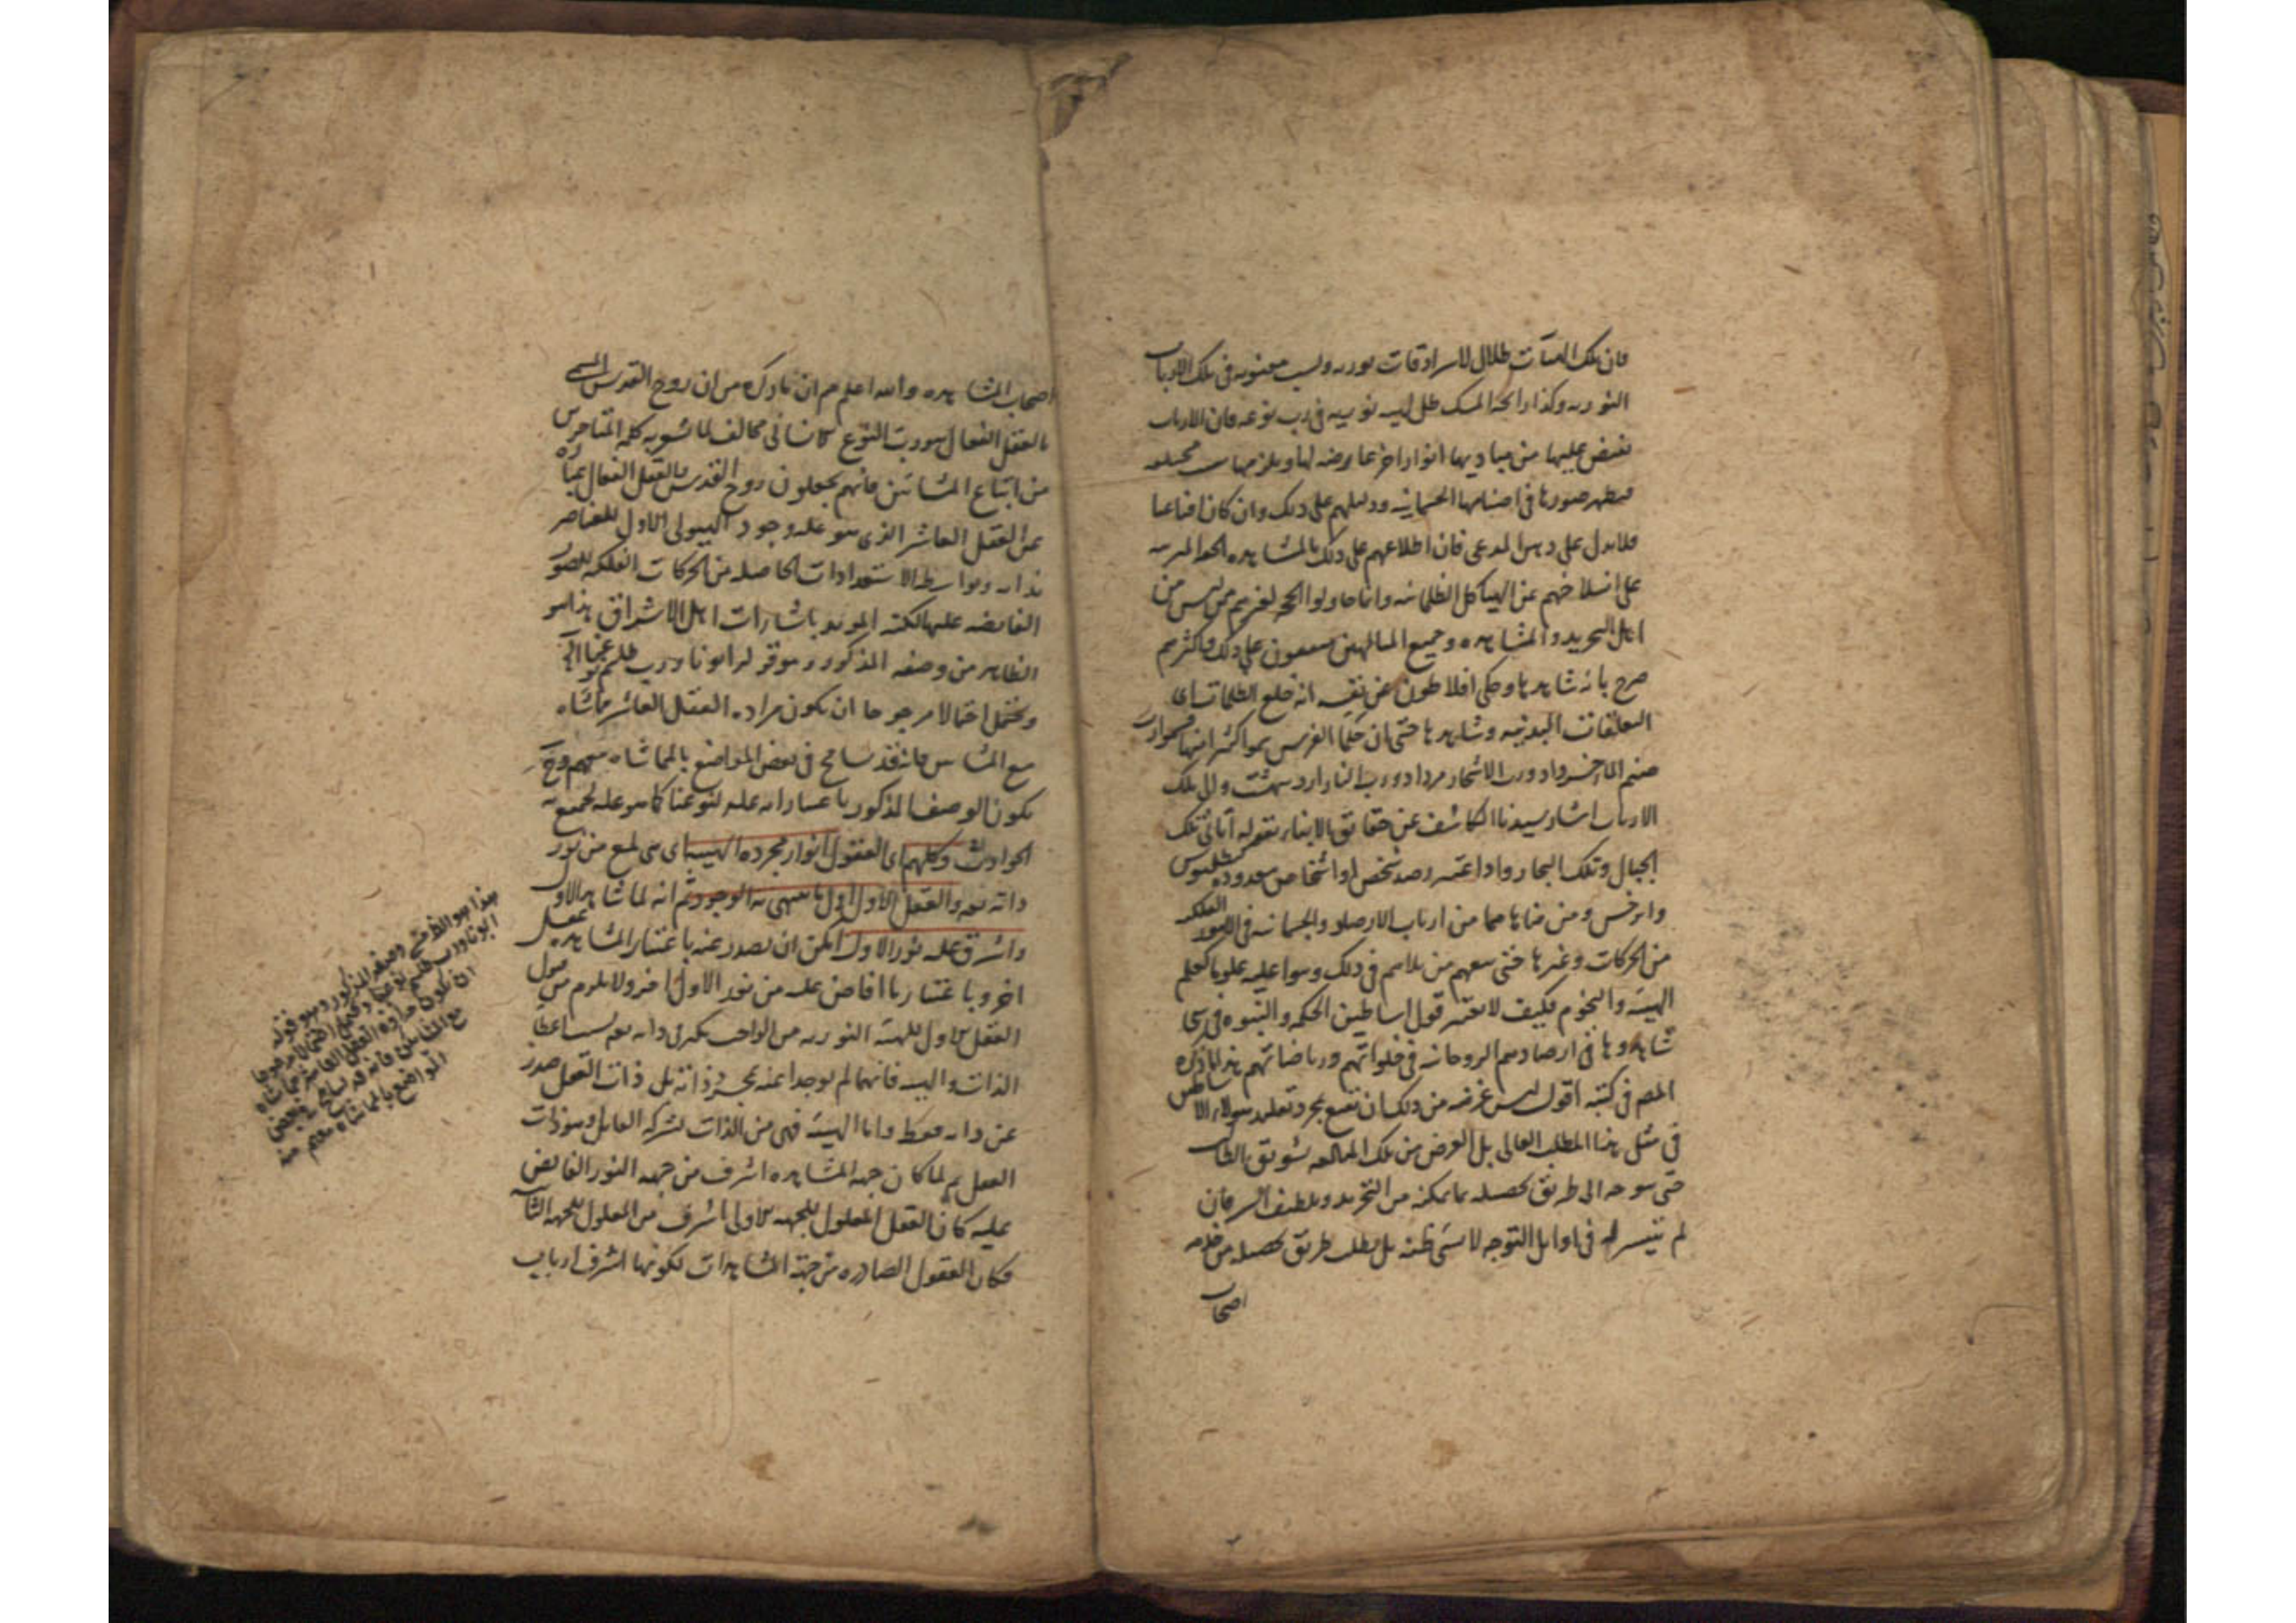 فان تلك الهيآت ظلال لاسراقات نوريه ونسب معنويه فى تلك الارباب
النوريه وكذا رايحة المسك ظل لهيئه نوريه فى رب نوعه فان الارباب
تفيض عليها من مباديها انوار اخر عارضه لها ويلزمها نسب مختلفه
فيظهر صورها فى اصنامها الجسمانيه ودليلهم على ذلك وان كان اقناعيا
فلا يدل على وهن المدعى فان اطلاعهم على ذلك بالمشاهده الحقه المترتبه
على انسلاخهم عن الهياكل الظلمانيه وانما حاولوا الحجه لغيرهم ممن ليس من
اهل التجريد والمشاهده وجميع المتالهين متفقون على ذلك واكثرهم
صرح بانه شاهدها وحكى افلاطون عن نفسه انه خلع الظلمات اى
التعلقات البدنيه وشاهدها حتى ان حكما الفرس سموا كثيرا منها فسموا رب
صنم الما خرداد ورب الاشجار مرداد ورب النار ارديبهشت والى تلك
الارباب اشار سيدنا الكاشف عن حقايق الابناء بقوله اتانى ملك
الجبال وملك البحار واذا اعتبر رصد شخص او اشخاص معدوده كبطلميوس
وابرخس ومن ضاهاهما من ارباب الارصاد الجسمانيه فى الامور الفلكيه
من الحركات وغيرها حتى تبعهم من تلاهم فى ذلك وبنوا عليه علوما كعلم
الهيئه والنجوم فكيف لا يعتبر قول اساطين الحكمه والنبوه فى اشيا
شاهدوها فى ارصادهم الروحانيه فى خلواتهم ورياضاتهم هذا ما ذكره
المصم فى كتبه اقول ليس غرضه من ذلك ان نقنع بمجرد تقليد هولاء الاساطين
فى مثل هذا المطلب العالى بل الغرض من تلك المبالغه تشويق الطالب
حتى يتوجه الى طريق تحصيله بما يمكنه من التجريد وتلطيف السر فان
لم يتيسر له فى اوايل التوجه لا يسئ ظنه بل يطلب طريق تحصيله من خدمه
اصحاب
اصحاب المشاهده والله اعلم ثم ان ما ذكره من ان روح القدس المسمى
بالعقل الفعال هو رب النوع الانسانى مخالف لما تشوبه كلمة المتاخرين
من اتباع المشائين فانهم يجعلون روح القدس والعقل الفعال عباره
عن العقل العاشر الذى هو عله وجود الهيولى الاول للعناصر
بذاته وبواسطه الاستعدادات الحاصله من الحركات الفلكيه للصور
الفايضه عليها لكنه المويد باشارات اهل الاشراق هذا هو
الظاهر من وصفه المذكور وهو قوله ابونا ورب طلسم نوعنا
ويحتمل احتمالا مرجوحا ان يكون مراده العقل العاشر مماشاه
مع المشائين فانه قد تسامح فى بعض المواضع بالمماشاه معهم وح
يكون الوصف المذكور باعتبار انه عله لنوعنا كما هو عله لجميع
الحوادث وكلهم اى العقول انوار مجرده الهيه اى هى لمع من نور
ذاته تعه والعقل الاول اول ما ينتهى به الوجود ثم انه لما شاهد الاول
واشرق عليه نور الاول امكن ان يصدر عنه باعتبار المشاهده عقل
اخر وباعتبار ما افاض عليه من نور الاول اخر ولا يلزم من قبول
العقل الاول للهيئه النوريه من الواجب تكثر فى ذاته تعه بسبب اعطا
الذات والهيئه فانهما لم يوجدا عنه بمجرد ذاته بل ذات العقل صدر
عن ذاته فقط واما الهيئه فهى من الذات بشركه القابل وهو ذات
العقل ثم لما كان جهه المشاهده اشرف من جهه النور الفايض
عليه كان العقل المعلول للجهه الاولى اشرف من المعلول للجهه الثانيه
فكان العقول الصادره من جهة المشاهدات لكونها اشرف ارباب
هذا هو الظ من وصفه المذكور وهو قوله
ابونا ورب طلسم نوعنا ويحتمل احتمالا مرجوحا
ان يكون مراده العقل العاشر مماشاه
مع المشائين فانه قد تسامح فى بعض
المواضع بالمماشاه معهم منه